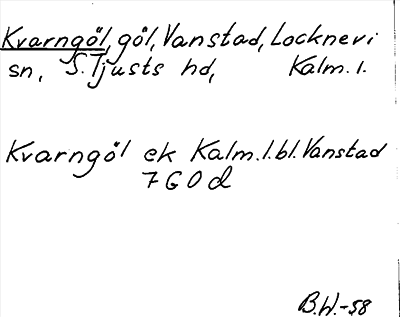 Kvarngöl, göl, Vanstad, Locknevi
sn, S. Tjusts hd, Kalm. l.
Kvarngöl ek Kalm. l. bl. Vanstad
7 G 0 d
B.W.-58